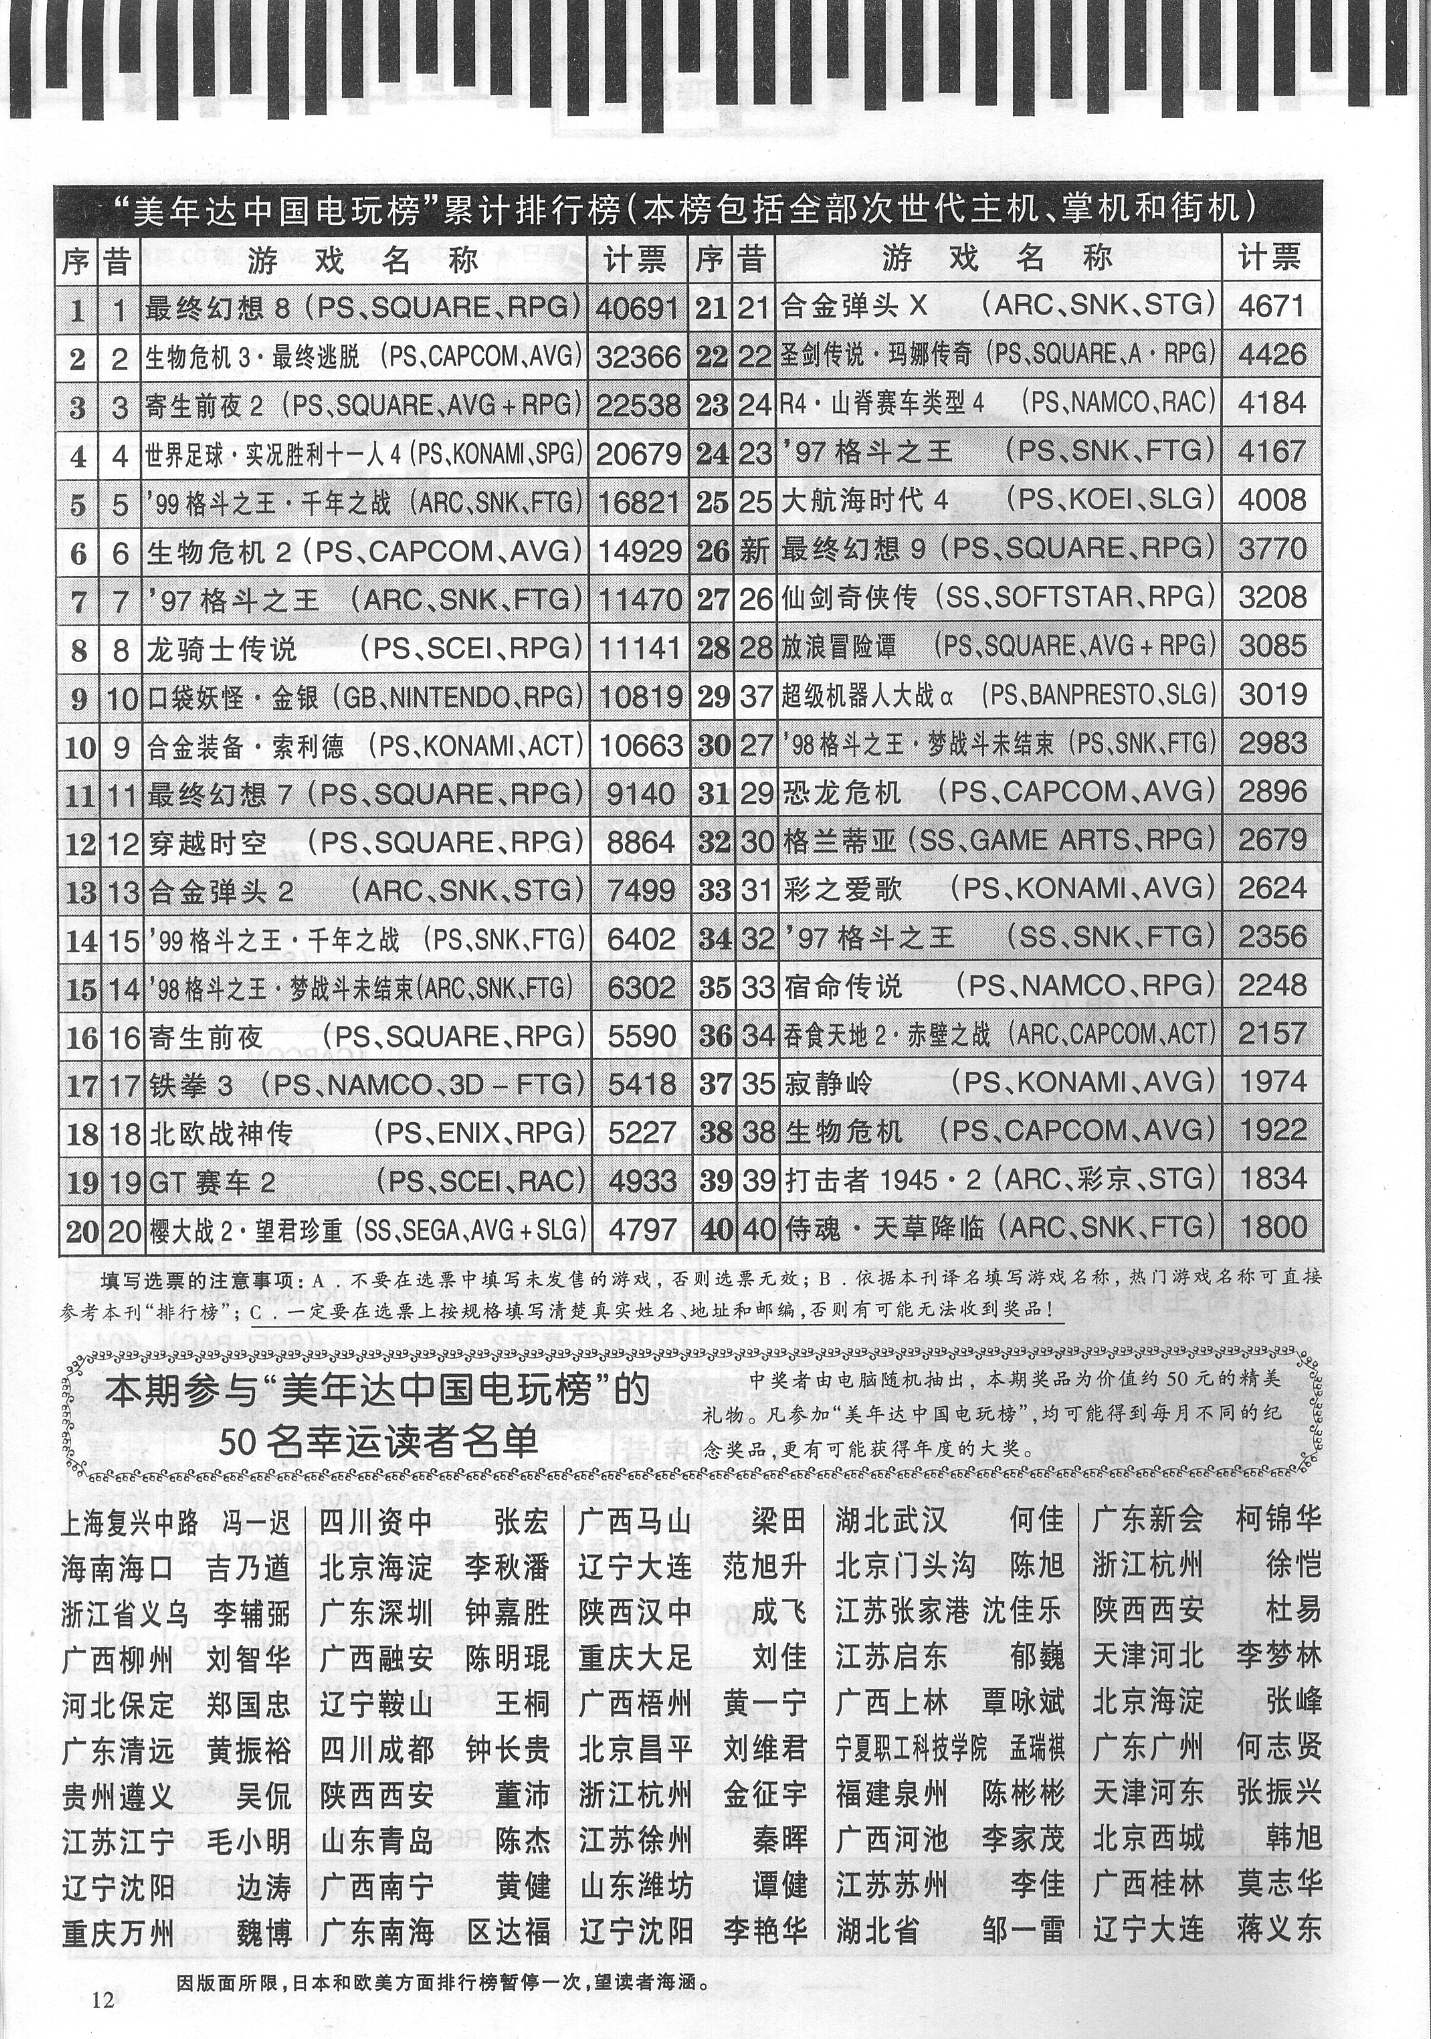 “美年达中国电玩榜”累计排行榜(本榜包括全部次世代主机、掌机和街机)
序 昔 游戏名称 计票 序 昔 游戏名称 计票
1 1 最终幻想8(PS、SQUARE、RPG) 40691 21 21 合金弹头X (ARC、SNK、STG) 4671
2 2 生物危机3·最终逃脱 (PS、CAPCOM、AVG) 32366 22 22 圣剑传说·玛娜传奇(PS、SQUARE、A·RPG) 4426
3 3 寄生前夜2 (PS、SQUARE、AVG+RPG) 22538 23 24 R4·山脊赛车类型4 (PS、NAMCO、RAC) 4184
4 4 世界足球·实况胜利十一人4(PS、KONAMI、SPG) 20679 24 23 '97格斗之王 (PS、SNK、FTG) 4167
5 5 '99格斗之王·千年之战 (ARC、SNK、FTG) 16821 25 25 大航海时代4 (PS、KOEI、SLG) 4008
6 6 生物危机2(PS、CAPCOM、AVG) 14929 26 新 最终幻想9(PS、SQUARE、RPG) 3770
7 7 '97格斗之王 (ARC、SNK、FTG) 11470 27 26 仙剑奇侠传(SS、SOFTSTAR、RPG) 3208
8 8 龙骑士传说 (PS、SCEI、RPG) 11141 28 28 放浪冒险谭 (PS、SQUARE、AVG+RPG) 3085
9 10 口袋妖怪·金银(GB、NINTENDO、RPG) 10819 29 37 超级机器人大战α (PS、BANPRESTO、SLG) 3019
10 9 合金装备·索利德 (PS、KONAMI、ACT) 10663 30 27 '98格斗之王·梦战斗未结束(PS、SNK、FTG) 2983
11 11 最终幻想7(PS、SQUARE、RPG) 9140 31 29 恐龙危机 (PS、CAPCOM、AVG) 2896
12 12 穿越时空 (PS、SQUARE、RPG) 8864 32 30 格兰蒂亚(SS、GAME ARTS、RPG) 2679
13 13 合金弹头2 (ARC、SNK、STG) 7499 33 31 彩之爱歌 (PS、KONAMI、AVG) 2624
14 15 '99格斗之王·千年之战 (PS、SNK、FTG) 6402 34 32 '97格斗之王 (SS、SNK、FTG) 2356
15 14 '98格斗之王·梦战斗未结束(ARC、SNK、FTG) 6302 35 33 宿命传说 (PS、NAMCO、RPG) 2248
16 16 寄生前夜 (PS、SQUARE、RPG) 5590 36 34 吞食天地2·赤壁之战 (ARC、CAPCOM、ACT) 2157
17 17 铁拳3 (PS、NAMCO、3D-FTG) 5418 37 35 寂静岭 (PS、KONAMI、AVG) 1974
18 18 北欧战神传 (PS、ENIX、RPG) 5227 38 38 生物危机 (PS、CAPCOM、AVG) 1922
19 19 GT赛车2 (PS、SCEI、RAC) 4933 39 39 打击者1945·2(ARC、彩京、STG) 1834
20 20 樱大战2·望君珍重(SS、SEGA、AVG+SLG) 4797 40 40 侍魂·天草降临(ARC、SNK、FTG) 1800
填写选票的注意事项:A.不要在选票中填写未发售的游戏,否则选票无效;B.依据本刊译名填写游戏名称,热门游戏名称可直接
参考本刊“排行榜”;C.一定要在选票上按规格填写清楚真实姓名、地址和邮编,否则有可能无法收到奖品!
本期参与“美年达中国电玩榜”的
50名幸运读者名单
中奖者由电脑随机抽出,本期奖品为价值约50元的精美
礼物。凡参加“美年达中国电玩榜”,均可能得到每月不同的纪
念奖品,更有可能获得年度的大奖。
上海复兴中路 冯一迟 四川资中 张宏 广西马山 梁田 湖北武汉 何佳 广东新会 柯锦华
海南海口 吉乃遒 北京海淀 李秋潘 辽宁大连 范旭升 北京门头沟 陈旭 浙江杭州 徐恺
浙江省义乌 李辅弼 广东深圳 钟嘉胜 陕西汉中 成飞 江苏张家港 沈佳乐 陕西西安 杜易
广西柳州 刘智华 广西融安 陈明琨 重庆大足 刘佳 江苏启东 郁巍 天津河北 李梦林
河北保定 郑国忠 辽宁鞍山 王桐 广西梧州 黄一宁 广西上林 覃咏斌 北京海淀 张峰
广东清远 黄振裕 四川成都 钟长贵 北京昌平 刘维君 宁夏职工科技学院 孟瑞祺 广东广州 何志贤
贵州遵义 吴侃 陕西西安 董沛 浙江杭州 金征宇 福建泉州 陈彬彬 天津河东 张振兴
江苏江宁 毛小明 山东青岛 陈杰 江苏徐州 秦晖 广西河池 李家茂 北京西城 韩旭
辽宁沈阳 边涛 广西南宁 黄健 山东潍坊 谭健 江苏苏州 李佳 广西桂林 莫志华
重庆万州 魏博 广东南海 区达福 辽宁沈阳 李艳华 湖北省 邹一雷 辽宁大连 蒋义东
因版面所限,日本和欧美方面排行榜暂停一次,望读者海涵。
12